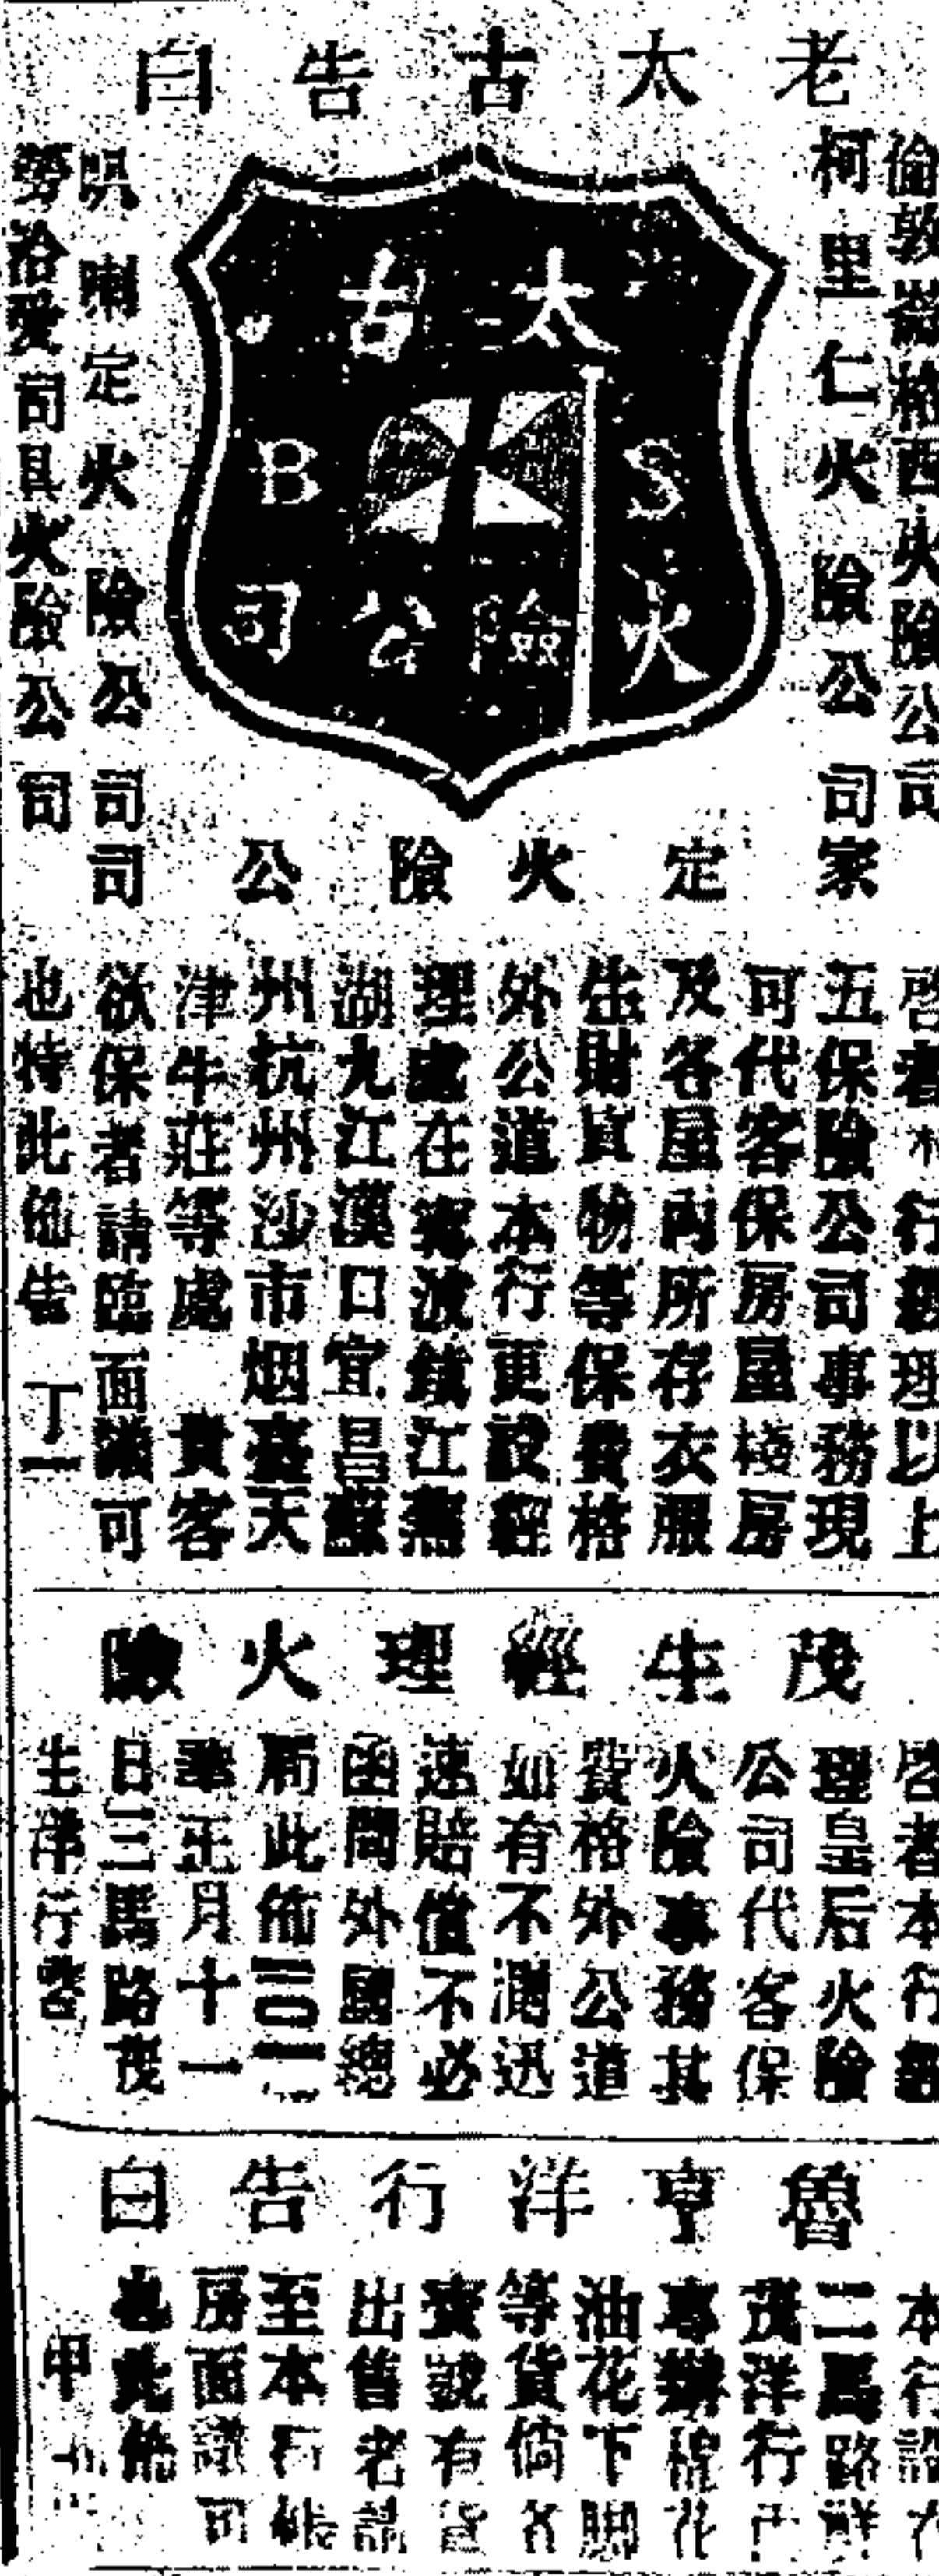 老太古告白
倫敦崙格西火險公司
柯里仁火險公司家
太古
S B
火險公司
定火險公司
喇定火險公司
勞洽愛司具火險公司
啓者本行經理以上
五保險公司事務現
可代客保房屋棧房
及各屋兩所存衣服
生財貨物等保費格
外公道本行更設經
理處在寗波鎮江蕪
湖九江漢口宜昌蘇
州杭州沙市烟臺天
津牛莊等處 貴客
欲保者請臨面議可
也特此佈告 丁一
茂生經理火險
啓者本行經
理皇后火險
公司代客保
火險事務其
費格外公道
如有不測迅
速賠償不必
函問外國總
局此佈
華正月十一
日三馬路茂
生洋行啓
魯亨洋行告白
本行設在
二馬路祥
茂洋行內
專辦棉花
油花下脚
等貨倘
寶號有貨
出售者請
至本行帳
房面議可
也此佈
甲